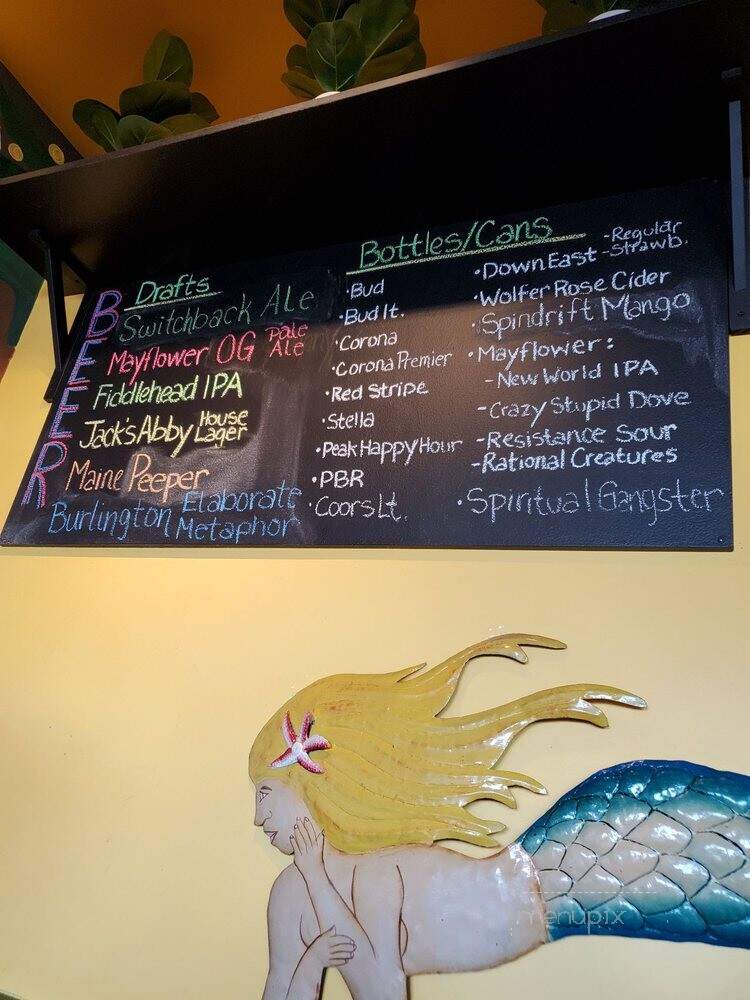 BEER
Drafts
Switchback Ale
Mayflower OG Pale Ale
Fiddlehead IPA
Jack's Abby House Lager
Maine Peeper
Burlington Elaborate Metaphor
Bottles/Cans
·Bud
·Bud lt.
·Corona
·Corona Premier
·Red Stripe
·Stella
·Peak Happy Hour
·PBR
·Coors Lt.
·Down East -Regular -Strawb.
·Wolfer Rose Cider
·Spindrift Mango
·Mayflower:
-New World IPA
-Crazy Stupid Dove
-Resistance Sour
-Rational Creatures
·Spiritual Gangster
menupix